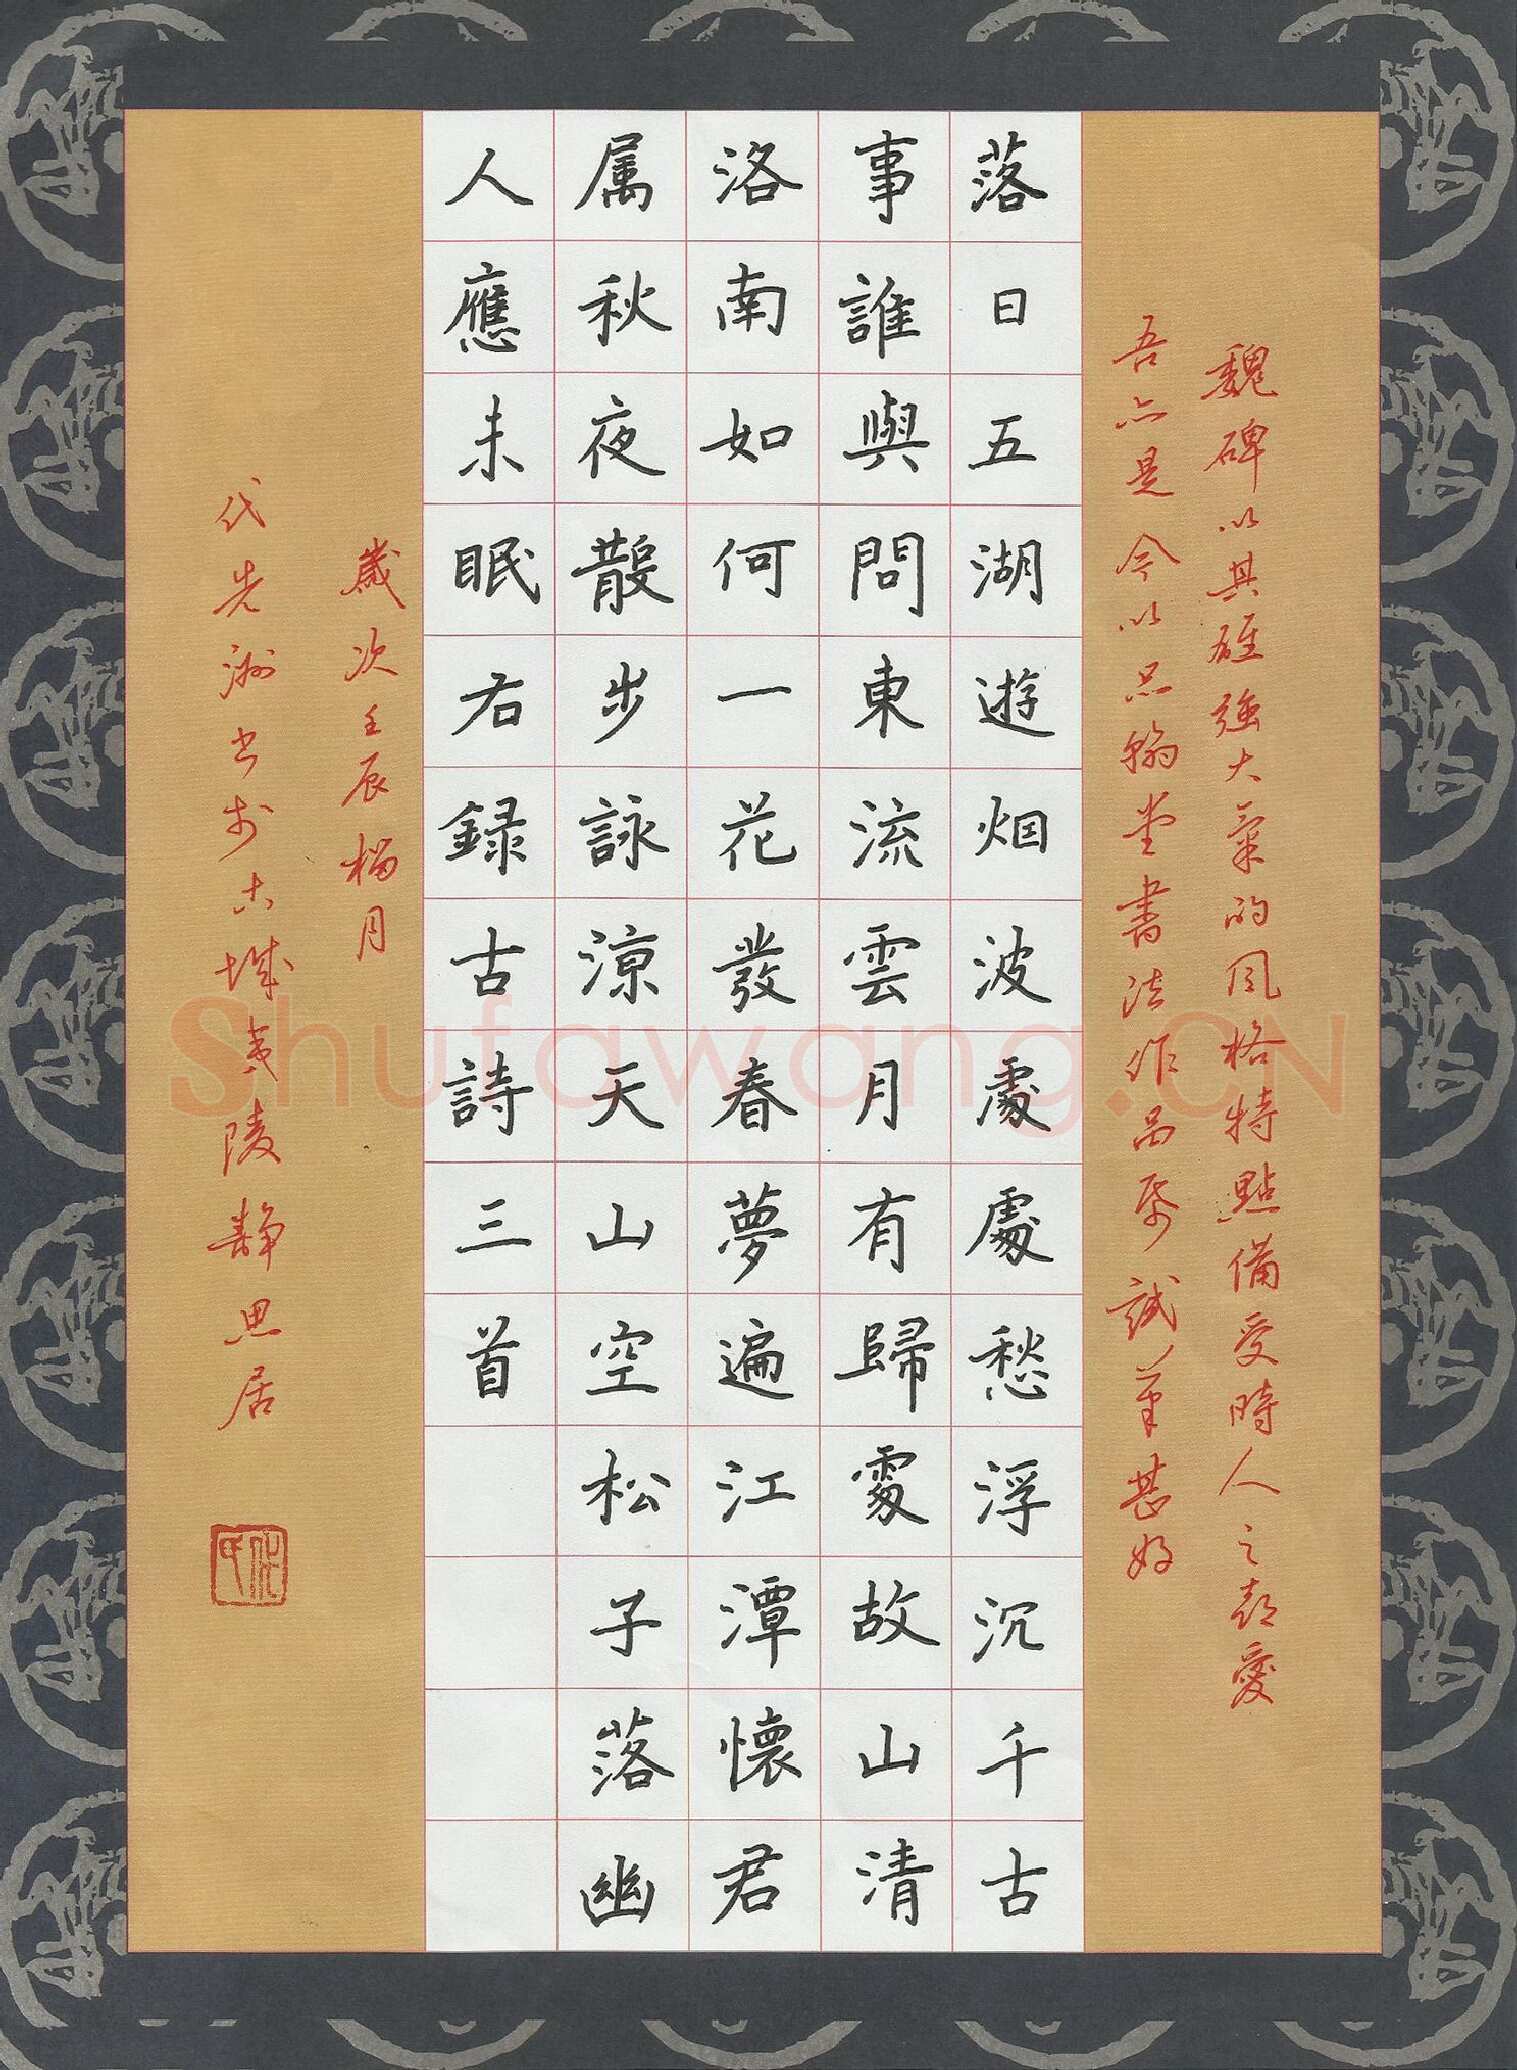 魏碑以其雄強大氣的風格特點備受時人之愛
吾亦是今以品翰堂書法作品帋試筆甚好
落日五湖遊烟波處處愁浮沉千古
事誰與問東流雲月有歸處故山清
洛南如何一花發春夢遍江潭懷君
属秋夜散步詠涼天山空松子落幽
人應未眠右録古詩三首
歲次壬辰榴月
代先洲书於古城夷陵静思居
代氏
Shufawang.CN